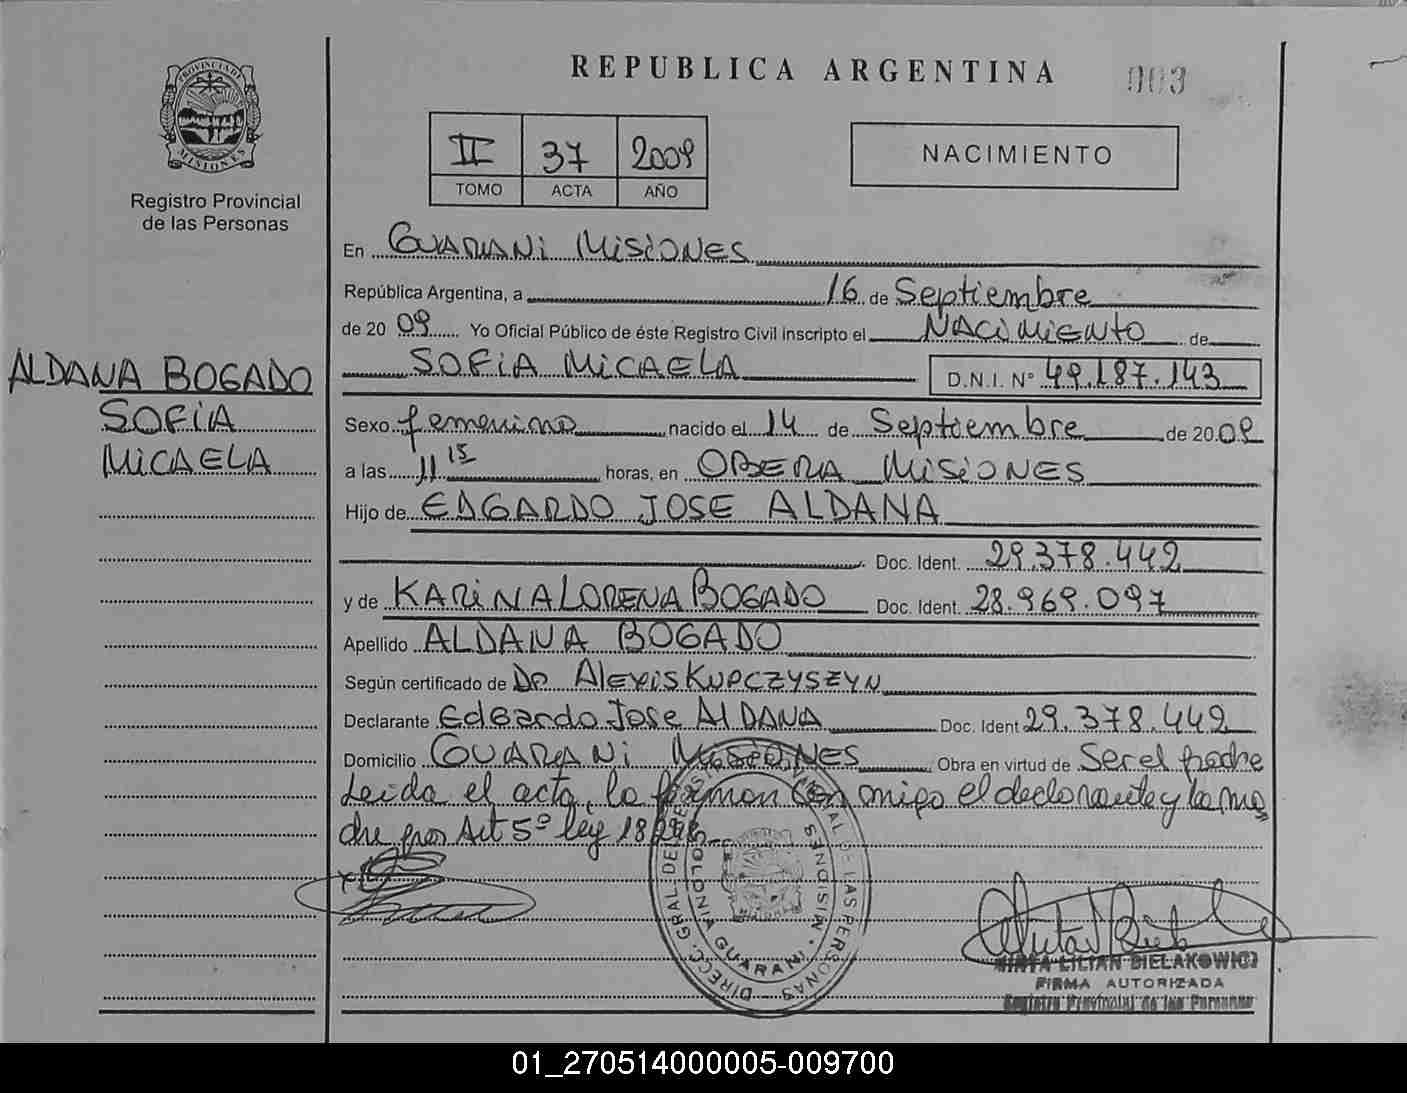 REPUBLICA ARGENTINA
003
PROVINCIA DE MISIONES
Registro Provincial
de las Personas
II 37 2009
TOMO ACTA AÑO
NACIMIENTO
ALDANA BOGADO
SOFIA
MICAELA
En GUARANI MISIONES
República Argentina, a 16 de Septiembre
de 2009 Yo Oficial Público de éste Registro Civil inscripto el NACIMIENTO de
SOFIA MICAELA D.N.I. Nº 49.187.143
Sexo femenino nacido el 14 de Septiembre de 2009
a las 11 15 horas, en OBERA MISIONES
Hijo de EDGARDO JOSE ALDANA
Doc. Ident. 29.378.442
y de KARINA LORENA BOGADO Doc. Ident. 28.969.097
Apellido ALDANA BOGADO
Según certificado de Dr Alexis KUPCZYSZYN
Declarante Edgardo Jose ALDANA Doc. Ident 29.378.442
Domicilio GUARANI MISIONES Obra en virtud de Ser el padre
Leida el acta, la firman con migo el declarante y la ma
dre por Art 5º ley 18
DIRECC. GRAL. DE PERSONAS
GUARANI - MISIONES
MIRTA LILIAN BIELAKOWICZ
FIRMA AUTORIZADA
Registro Provincial de las Personas
01_270514000005-009700